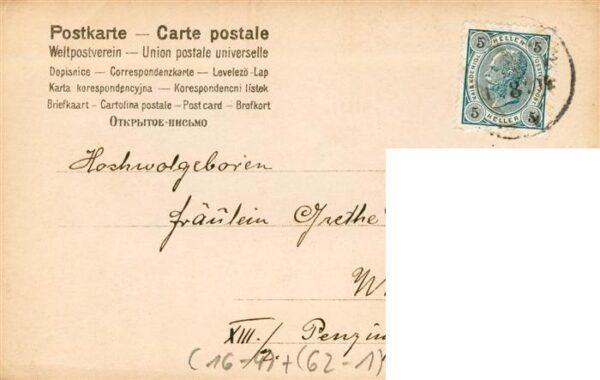 Postkarte — Carte postale
Weltpostverein — Union postale universelle
Dopisnice — Correspondenzkarte — Levelező-Lap
Karta korespondencyjna — Korespondencni lístek
Briefkaart — Cartolina postale — Post card — Brefkort
Открытое-письмо
5 HELLER 5
5 HELLER 5
Hochwolgeboren
Fräulein Grethe
W
XIII./ Penzin